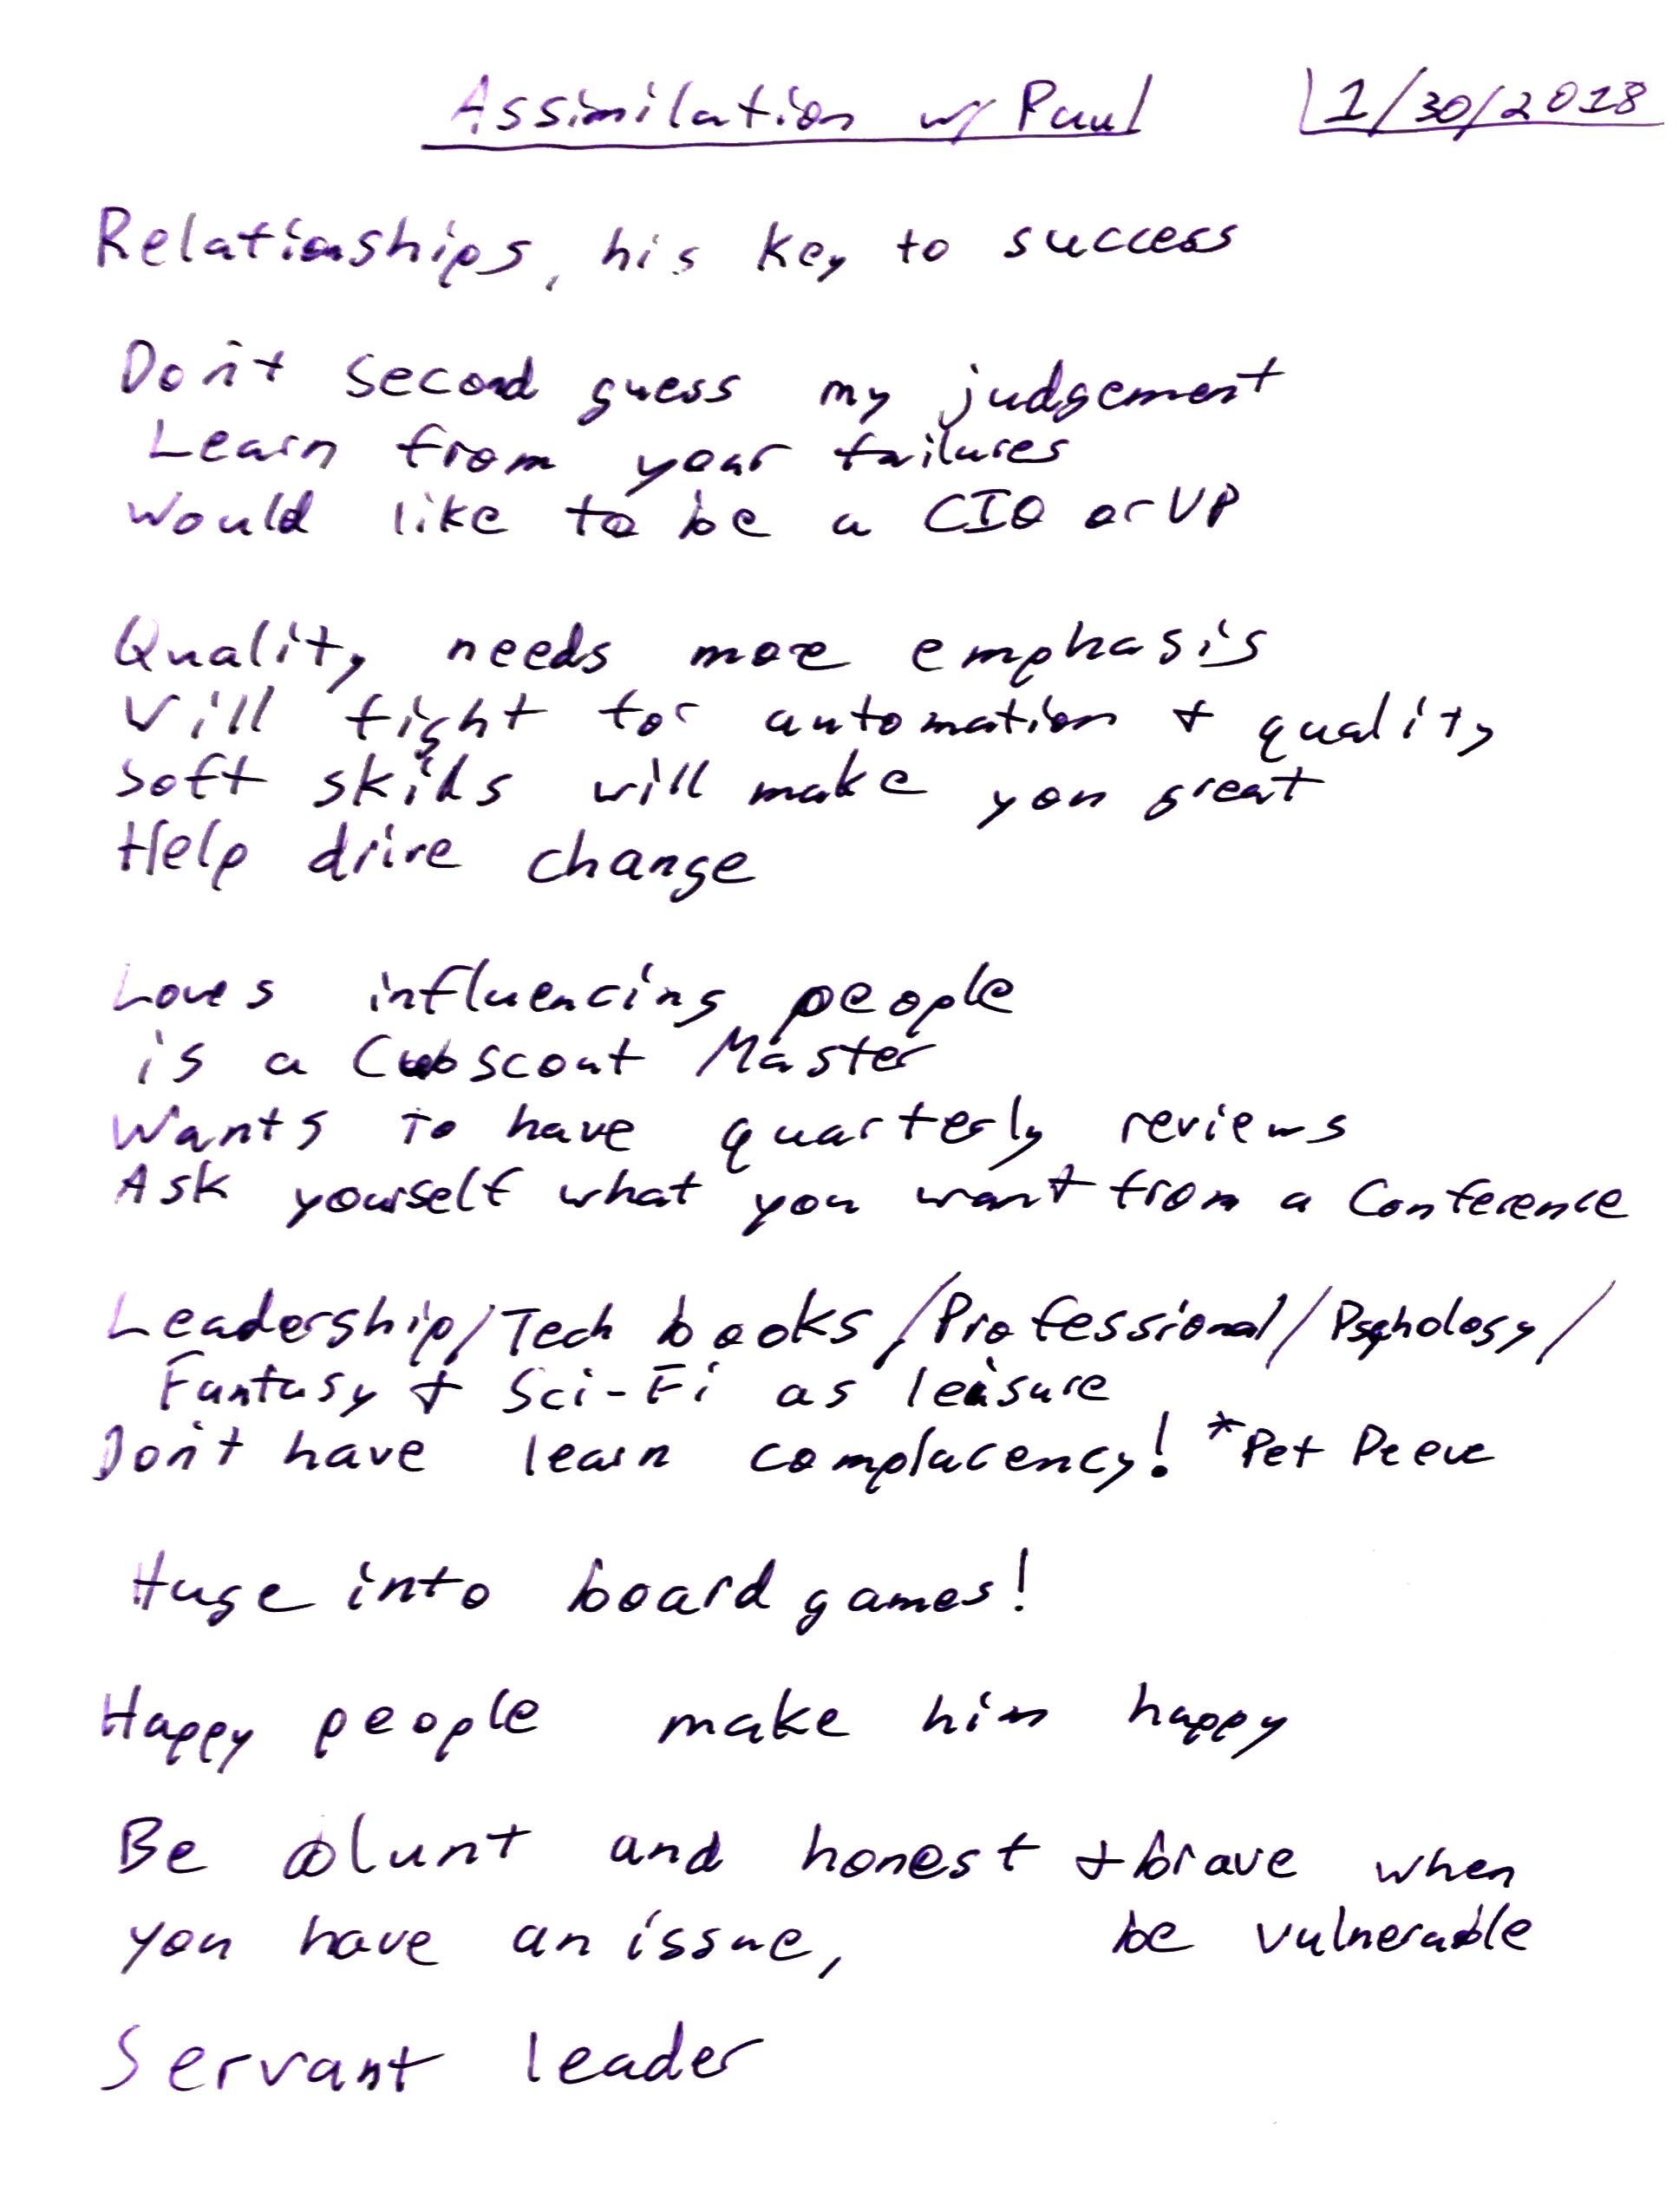 Assimilation w/ Paul 1/30/2018
Relationships, his key to success
Don't second guess my judgement
Learn from your failures
Would like to be a CIO or VP
Quality needs more emphasis
Will fight for automation + quality
Soft skills will make you great
Help drive change
Loves influencing people
is a Cubscout Master
Wants to have quarterly reviews
Ask yourself what you want from a Conference
Leadership/Tech books/Professional/Psychology/
Fantasy + Sci-Fi as leisure
Don't have learn complacency! *Pet Peeve
Huge into board games!
Happy people make him happy
Be blunt and honest + brave when
you have an issue, be vulnerable
Servant leader